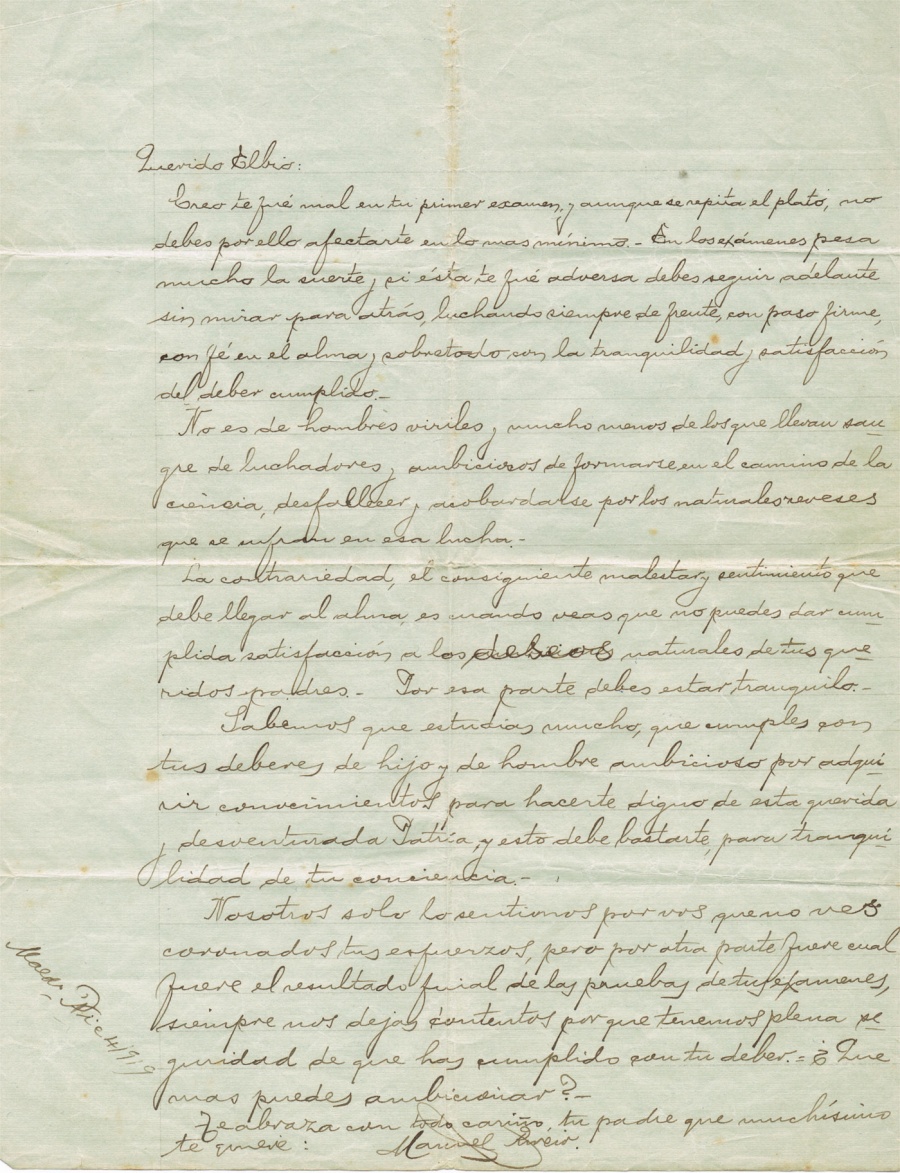 Querido Elbio:
Creo te fué mal en tu primer examen, y aunque se repita el plato, no
debes por ello afectarte en lo mas mínimo.- En los exámenes pesa
mucho la suerte y si ésta te fué adversa debes seguir adelante
sin mirar para atrás, luchando siempre de frente, con paso firme,
con fé en el alma y sobretodo con la tranquilidad y satisfacción
del deber cumplido.-
No es de hombres viriles y mucho menos de los que llevan san-
gre de luchadores y ambiciosos de formarse en el camino de la
ciencia, desfallecer y acobardarse por los naturales reveses
que se sufran en esa lucha.-
La contrariedad, el consiguiente malestar y sentimiento que
debe llegar al alma, es cuando veas que no puedes dar cum-
plida satisfacción a los deseos naturales de tus que-
ridos padres.- Por esa parte debes estar tranquilo.-
Sabemos que estudias mucho, que cumples con
tus deberes de hijo y de hombre ambicioso por adqui-
rir conocimientos para hacerte digno de esta querida
y desventurada Patria, y esto debe bastarte, para tranqui-
lidad de tu conciencia.-
Nosotros solo lo sentimos por vos que no ves
coronados tus esfuerzos, pero por otra parte fuere cual
fuere el resultado final de las pruebas de tus exámenes,
siempre nos dejas contentos porque tenemos plena se-
guridad de que has cumplido con tu deber.- ¿Que
mas puedes ambicionar?-
Te abraza con todo cariño, tu padre que muchísimo
te quiere: Manuel
Dic 4/919